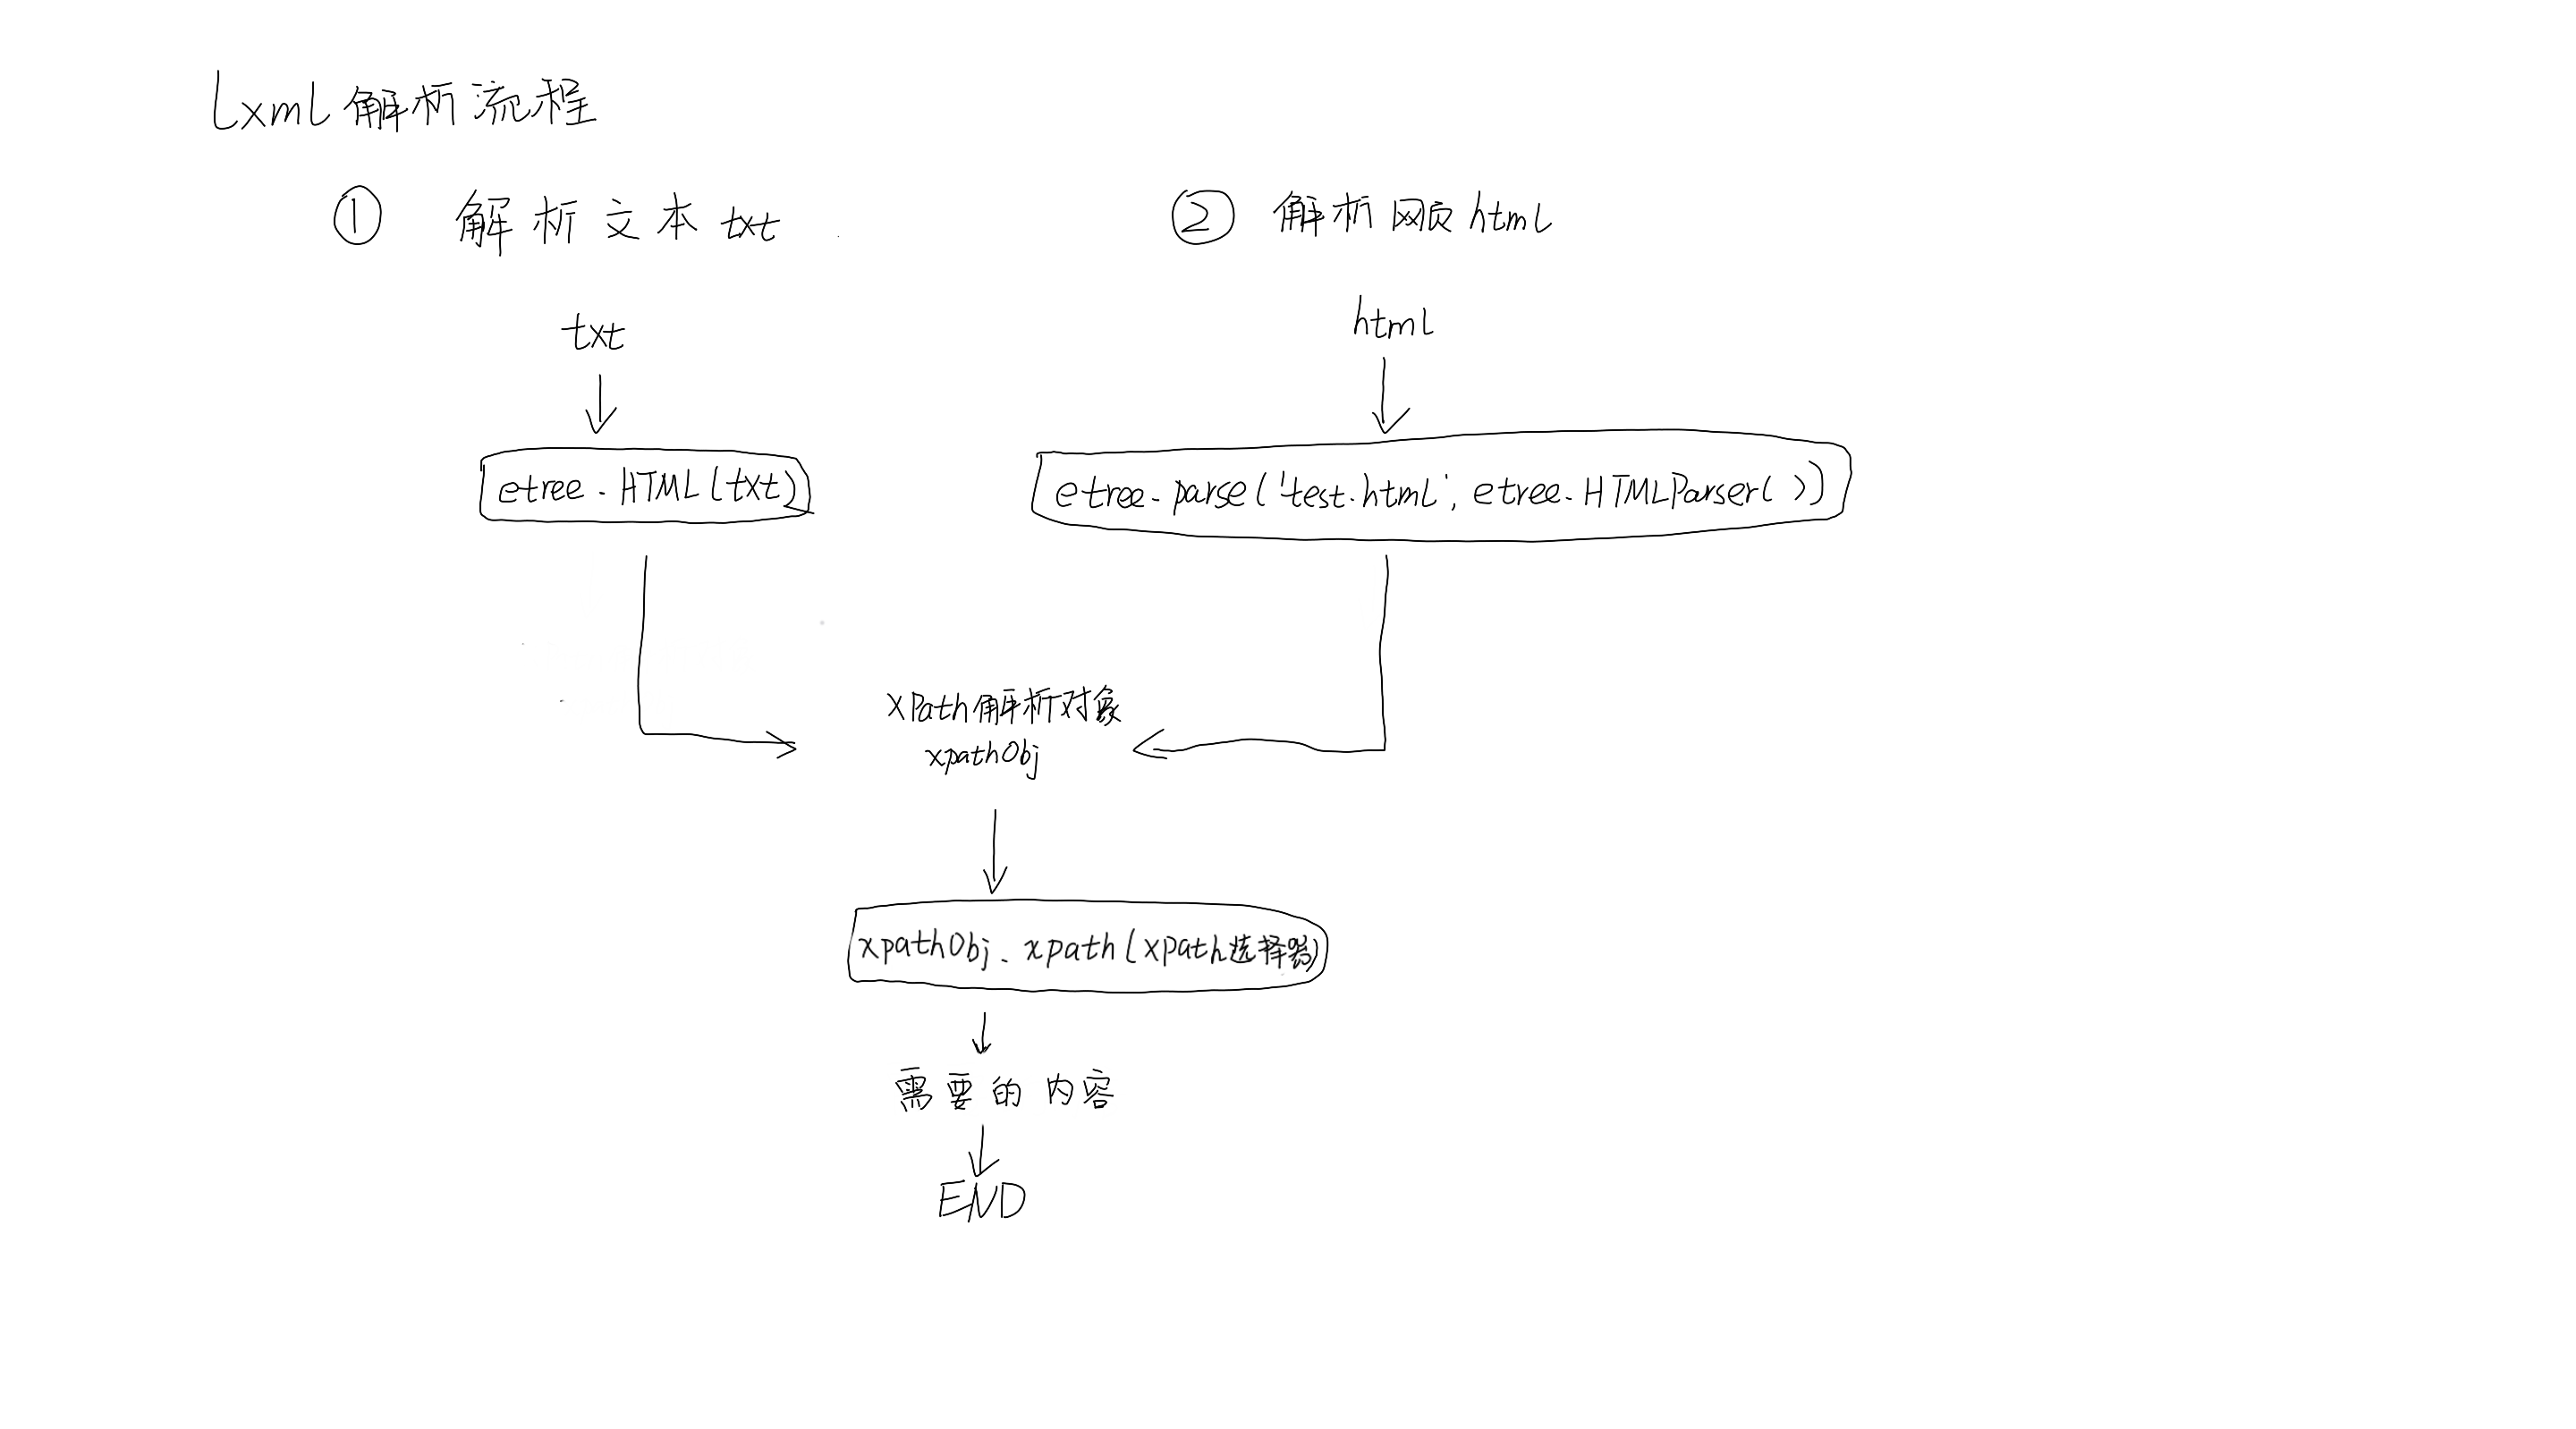 Lxml解析流程
① 解析文本txt
② 解析网页html
txt
html
etree.HTML(txt)
etree.parse('test.html', etree.HTMLParser())
XPath解析对象
xpathObj
xpathObj.xpath(xpath选择器)
需要的内容
END